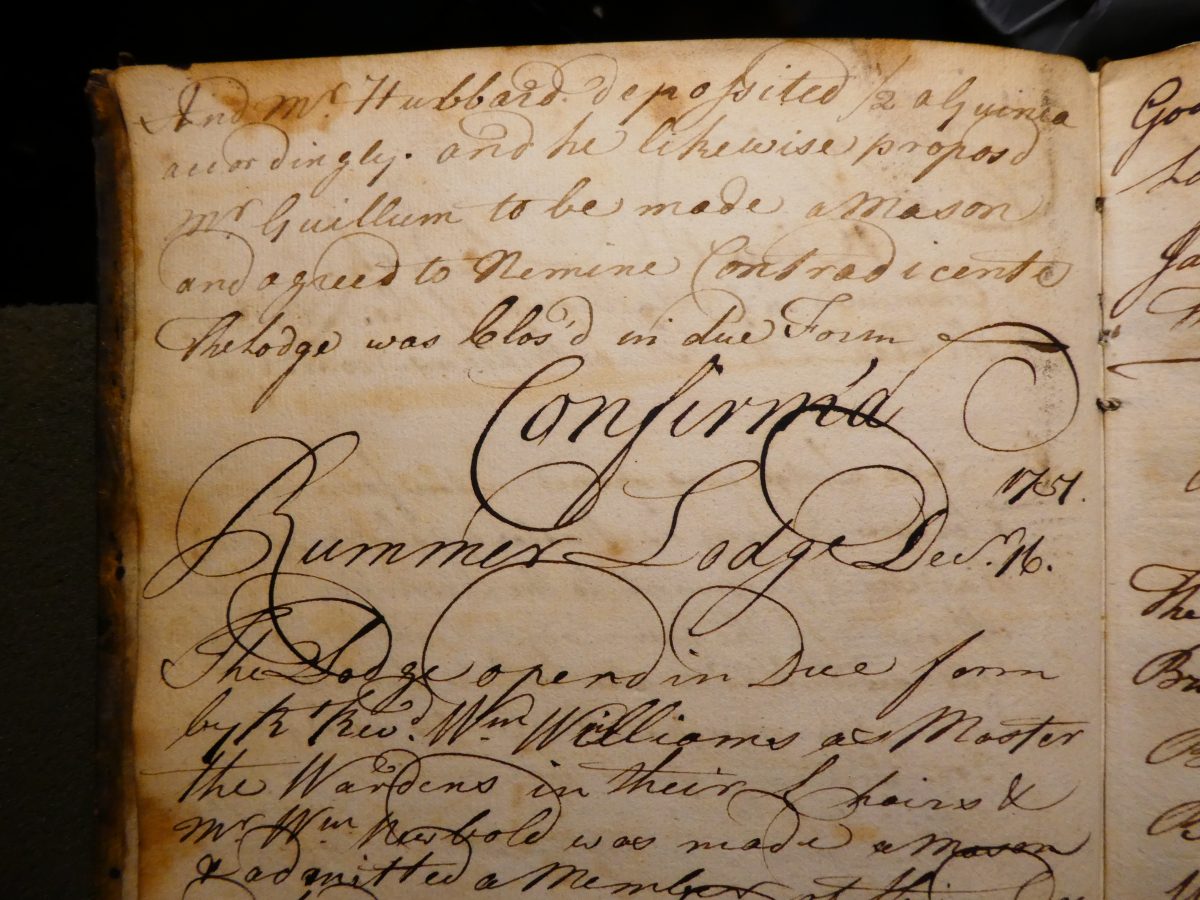 And Mr. Hubbard deposited 1/2 a Guinea
accordingly. and he likewise propos'd
Mr Guillum to be made a Mason
and agreed to Nemine Contradicente
The Lodge was Clos'd in due Form
Confirm'd
1757.
Rummer Lodge Decr. 16.
The Lodge opend in Due form
by Rt Revd. Wm Williams as Master
the Wardens in their Chairs &
Mr. Wm Newbold was made a Mason
& admitted a Member of this
Goo
Ja
The